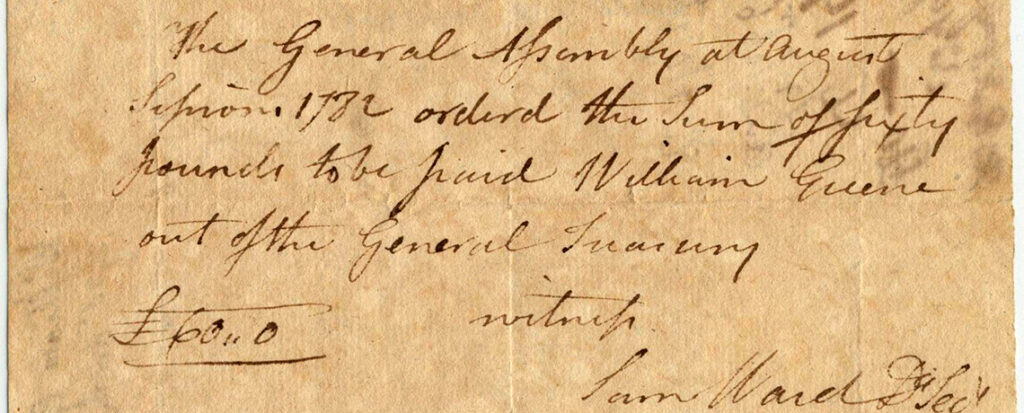 The General Assembly at August
Session 1782 orderd the Sum of sixty
pounds to be paid William Greene
out of the General Treasury
£60..0 witness
Sam Ward Dy Secy